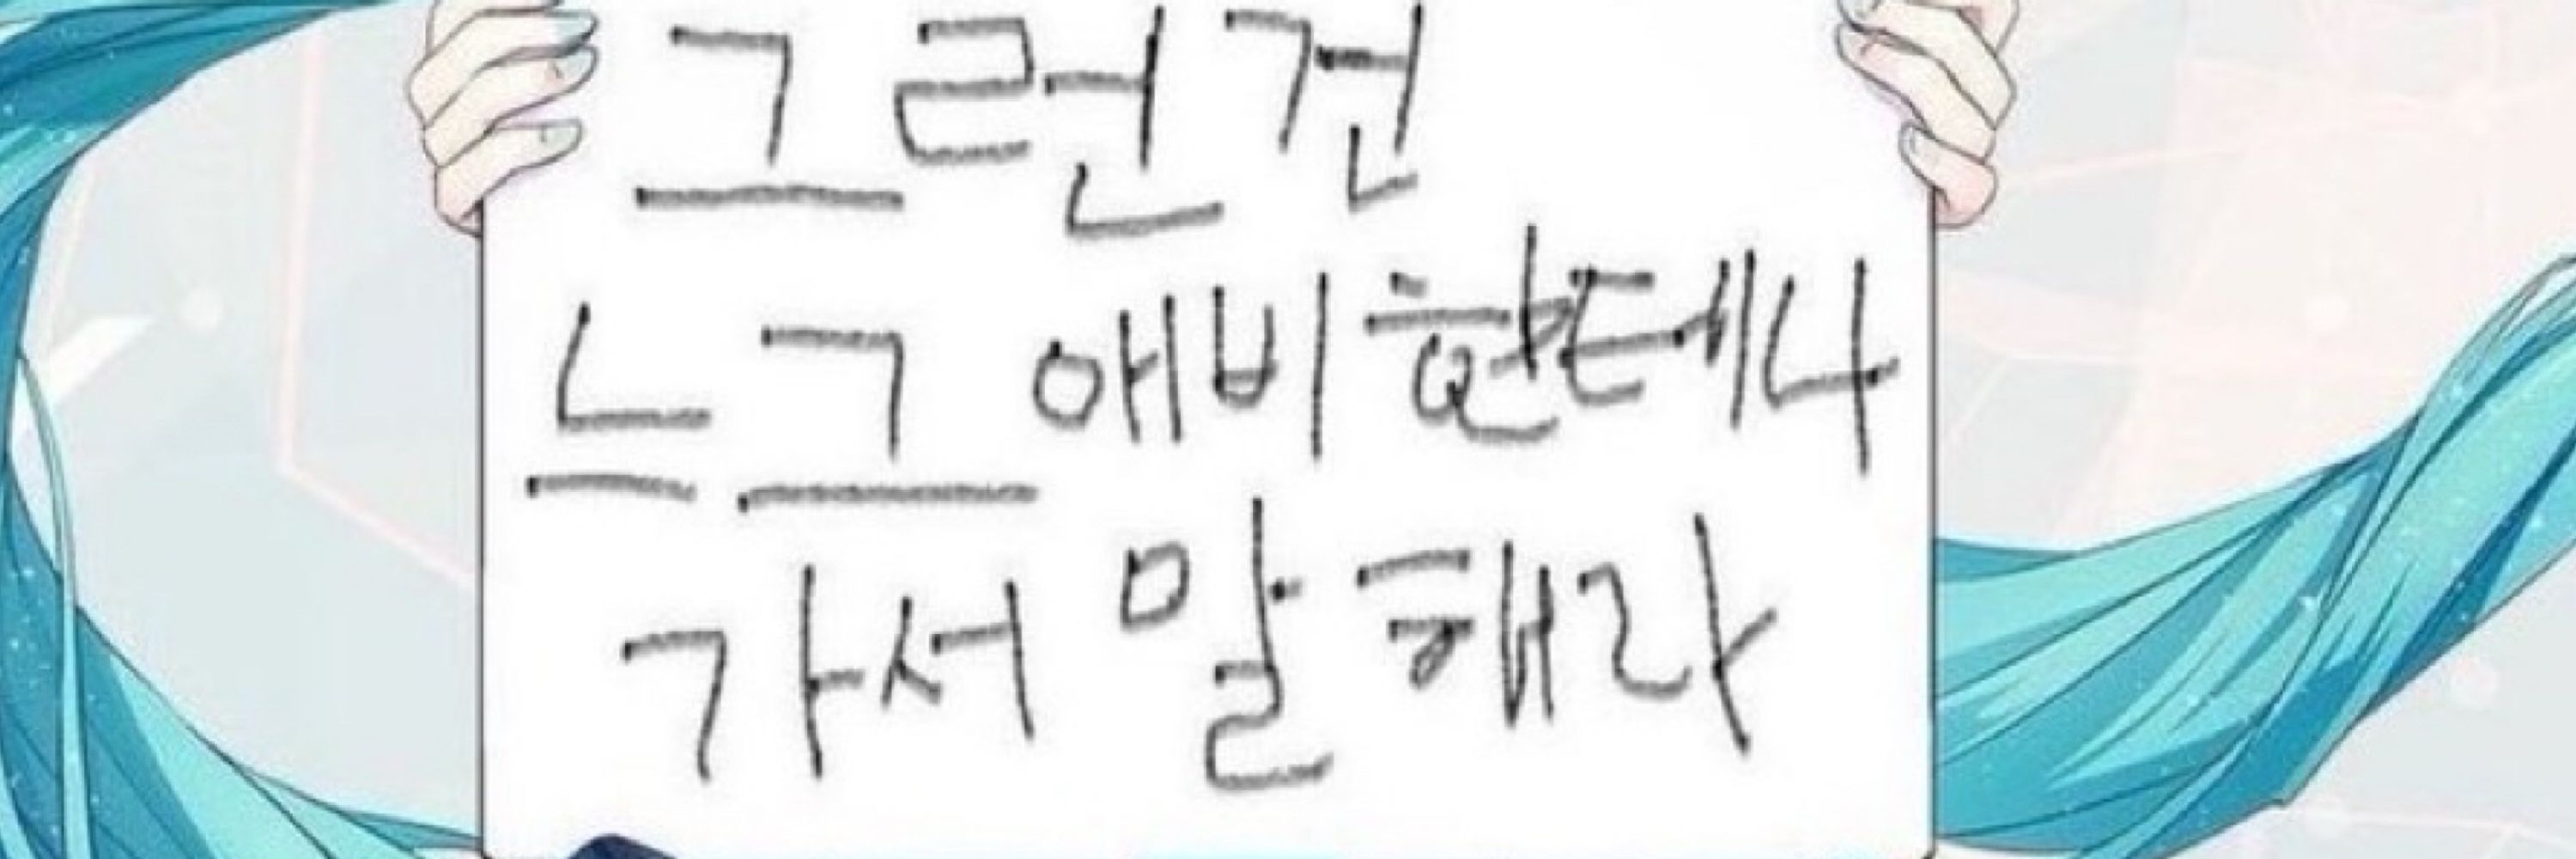 그런건
느그 애비한테나
가서 말해라